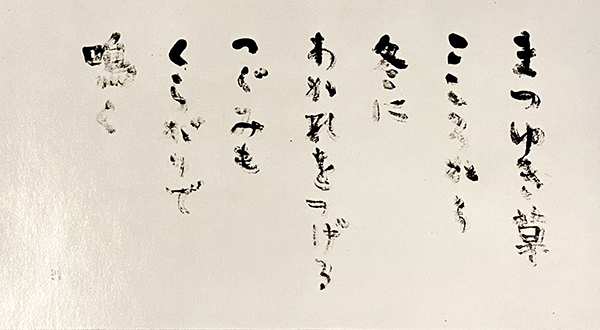 まつゆき草
こころから
冬に
わかれをつげる
つぐみも
くらがりで
鳴く